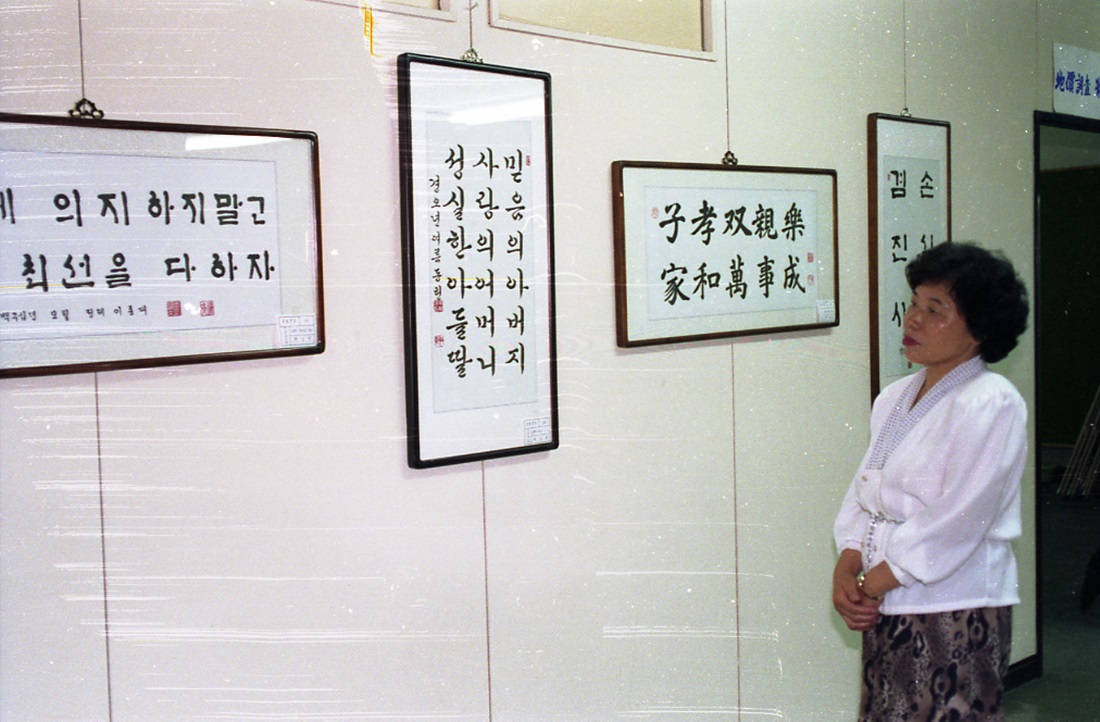 의지하지말고
최선을 다하자
믿음의아버지
사랑의어머니
성실한아들딸
경오년여름
子孝双親樂
家和萬事成
겸손
진
사
地價調査